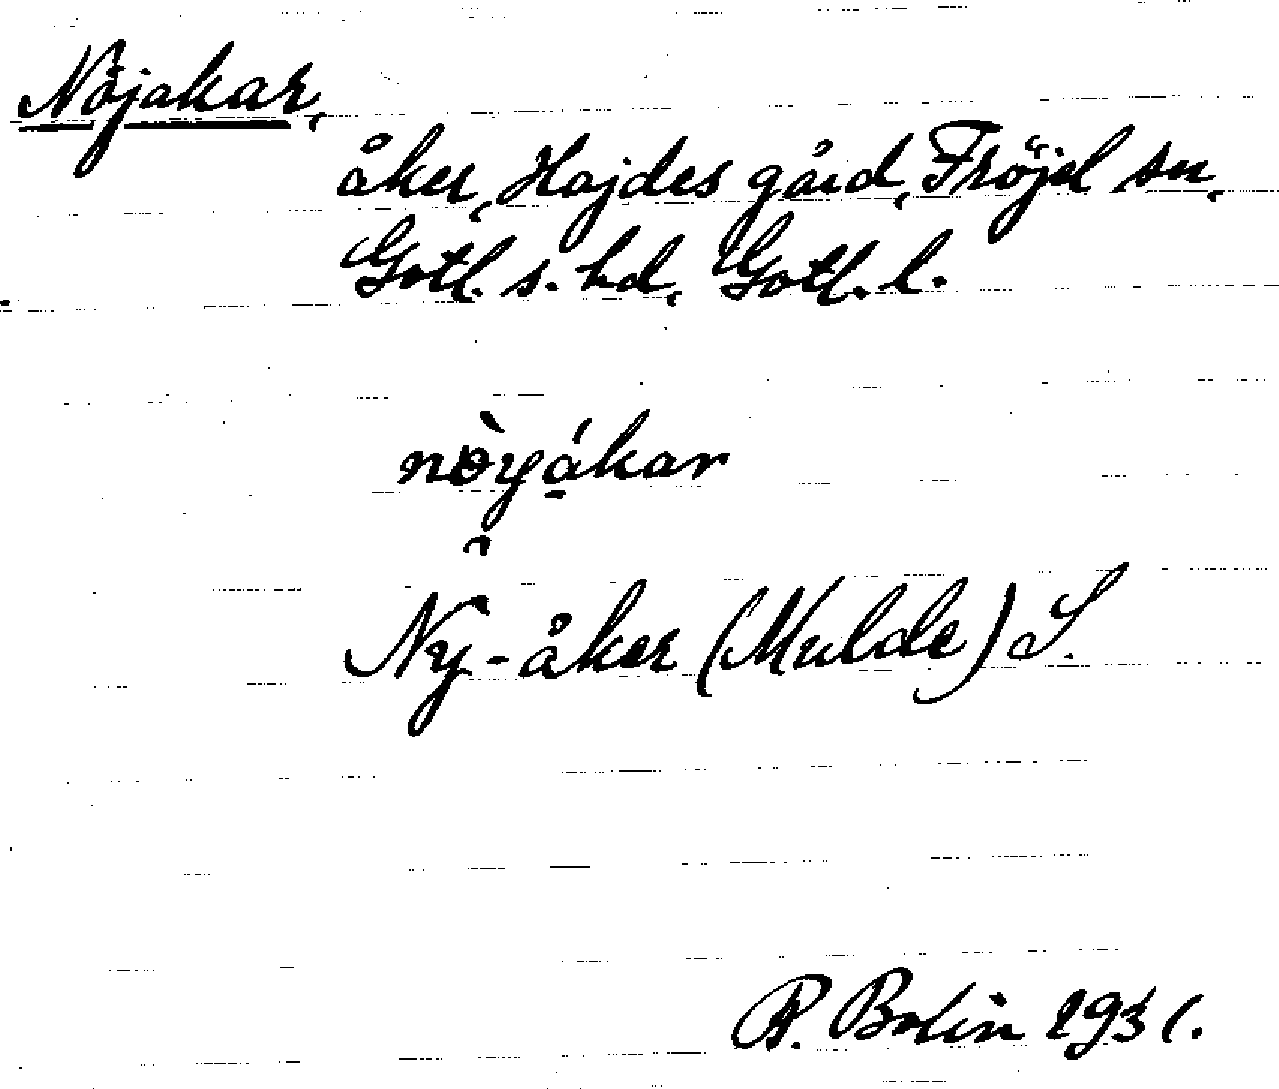 Nöjakar,
åker, Hajdes gård, Fröjel sn,
Gotl. s. hd, Gotl. l.
nòyákar
Ny-åker (Mulde) S.
P. Bolin 1931.